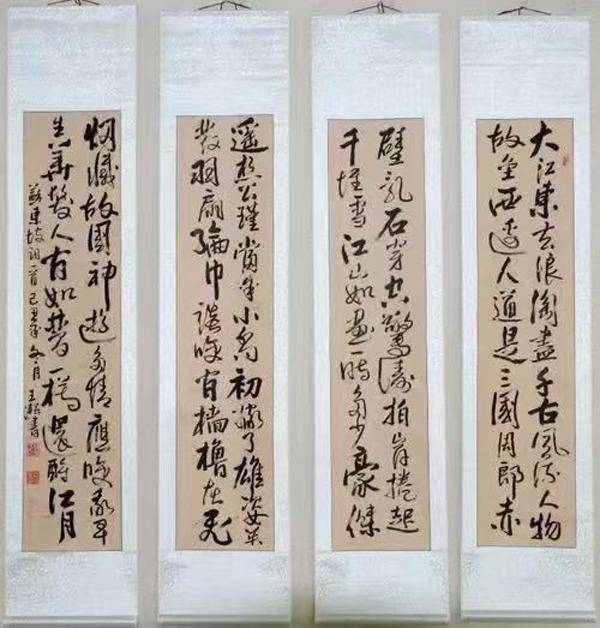 大江東去浪淘盡千古風流人物
故壘西邊人道是三國周郎赤
壁乱石穿空驚濤拍岸捲起
千堆雪江山如畫一時多少豪傑
遥想公瑾當年小喬初嫁了雄姿英
發羽扇綸巾談咲間檣櫓灰飛
烟滅故國神遊多情應咲我早
生華髮人間如夢一樽還酹江月
蘇東坡詞一首己丑年冬月王書